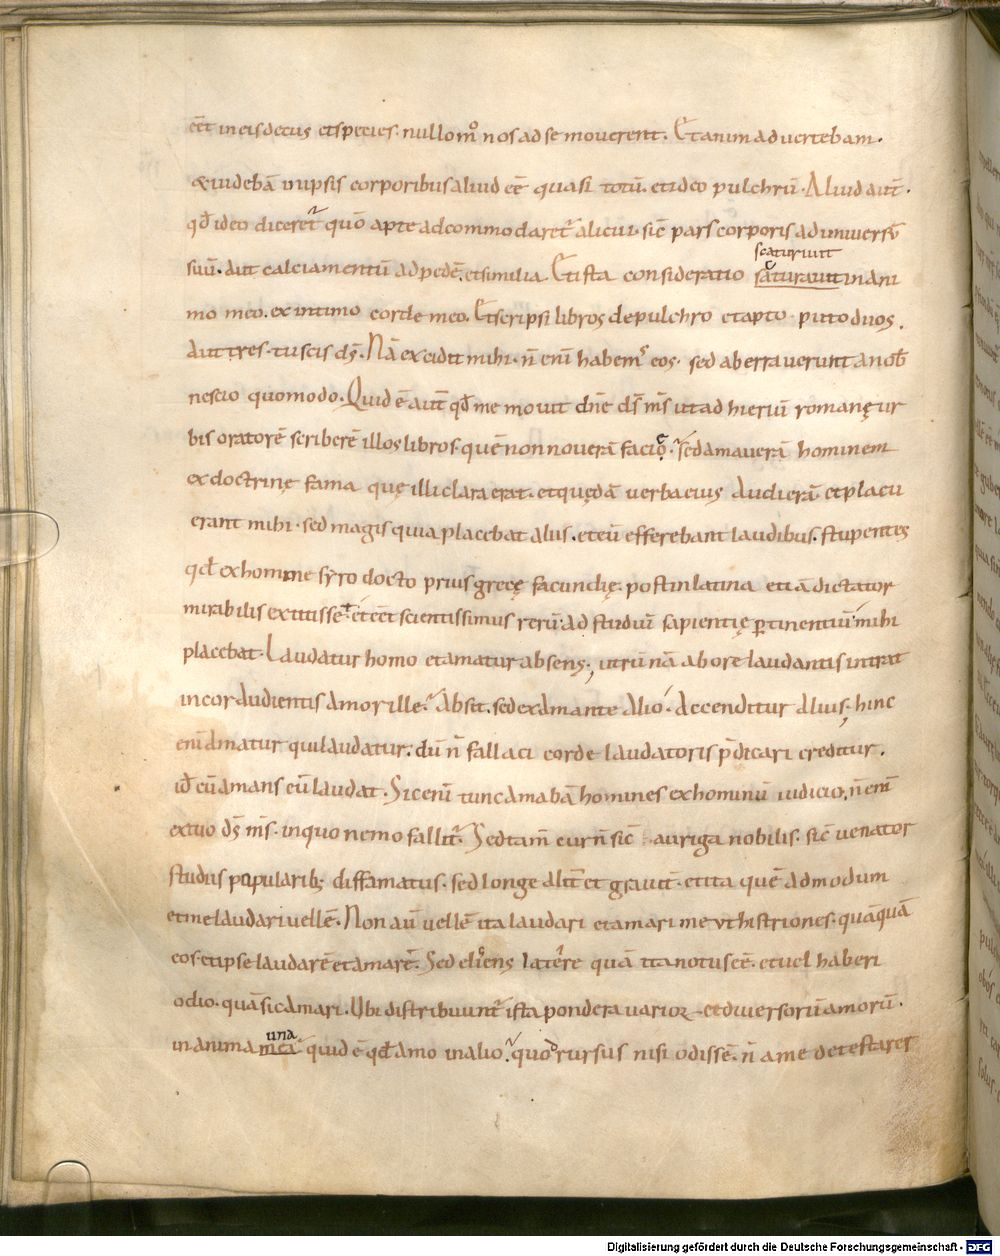 eēt in eis decus et species. nullo mº nos ad se mouerent. Et animaduertebam.
& uidebā in ipsis corporibus aliud eē quasi totū. et ideo pulchrū. Aliud aut̄.
qđ ideo diceret᷑ quō apte adcommodaret᷑ alicui. sic̄ pars corporis ad uniuersū
scaturiuit
suū. aut calciamentū ad pedē. et similia. Et ista consideratio saturauit in ani
mo meo. ex intimo corde meo. Et scripsi libros de pulchro et apto. puto duos.
aut tres. tu scis ds̄. Nā excidit mihi. n̄ eni᷑ habem᷒ eos. sed aberrauerunt a nob̄
nescio quomodo. Quid ē aut̄ qđ me mouit dn̄e ds̄ ms̄ ut ad hieriū romanę ur
bis oratorē scriberē illos libros. quē non nouerā facię. sed amauerā hominem
ex doctrinę fama quę illi clara erat. et quędā uerba eius audierā. et placu
erant mihi. sed magis quia placebat aliis. et eū efferebant laudibus. stupentes
qđ ex homine syro docto prius grecę facundię. post in latina etiā dictator
mirabilis extitisset. et eēt scientissimus rerū. ad studiū sapientię ꝑtinentiū. mihi
placebat. Laudatur homo et amatur absens; utrū nā ab ore laudantis intrat
in cor audientis amor ille. Absit. sed ex amante alio. accenditur alius; hinc
eni᷑ amatur qui laudatur. dū n̄ fallaci corde laudatoris p̄dicari creditur.
id̄ cū amans eū laudat. Sic eni᷑ tunc amabā homines ex hominū iudicio, n̄ eni᷑
ex tuo ds̄ ms̄. in quo nemo fallit᷑. Sed tam̄ cur n̄ sic̄ auriga nobilis. sic̄ uenator
studiis popularib; diffamatus. sed longe alit̄ et grauit̄. et ita quē admodum
et me laudari uellē. Non aū uellē ita laudari et amari me ut histriones. quāquā
eos et ipse laudarē et amarē. Sed eligens latere quā ita notus eē. et uel haberi
odio. quā sic amari. Ubi distribuunt᷑ ista pondera uarioꝝ. et diuersorū amorū.
una
in anima mea quid ē qđ amo in alio. quod rursus nisi odissē. n̄ a me detestarer
Digitalisierung gefördert durch die Deutsche Forschungsgemeinschaft - DFG